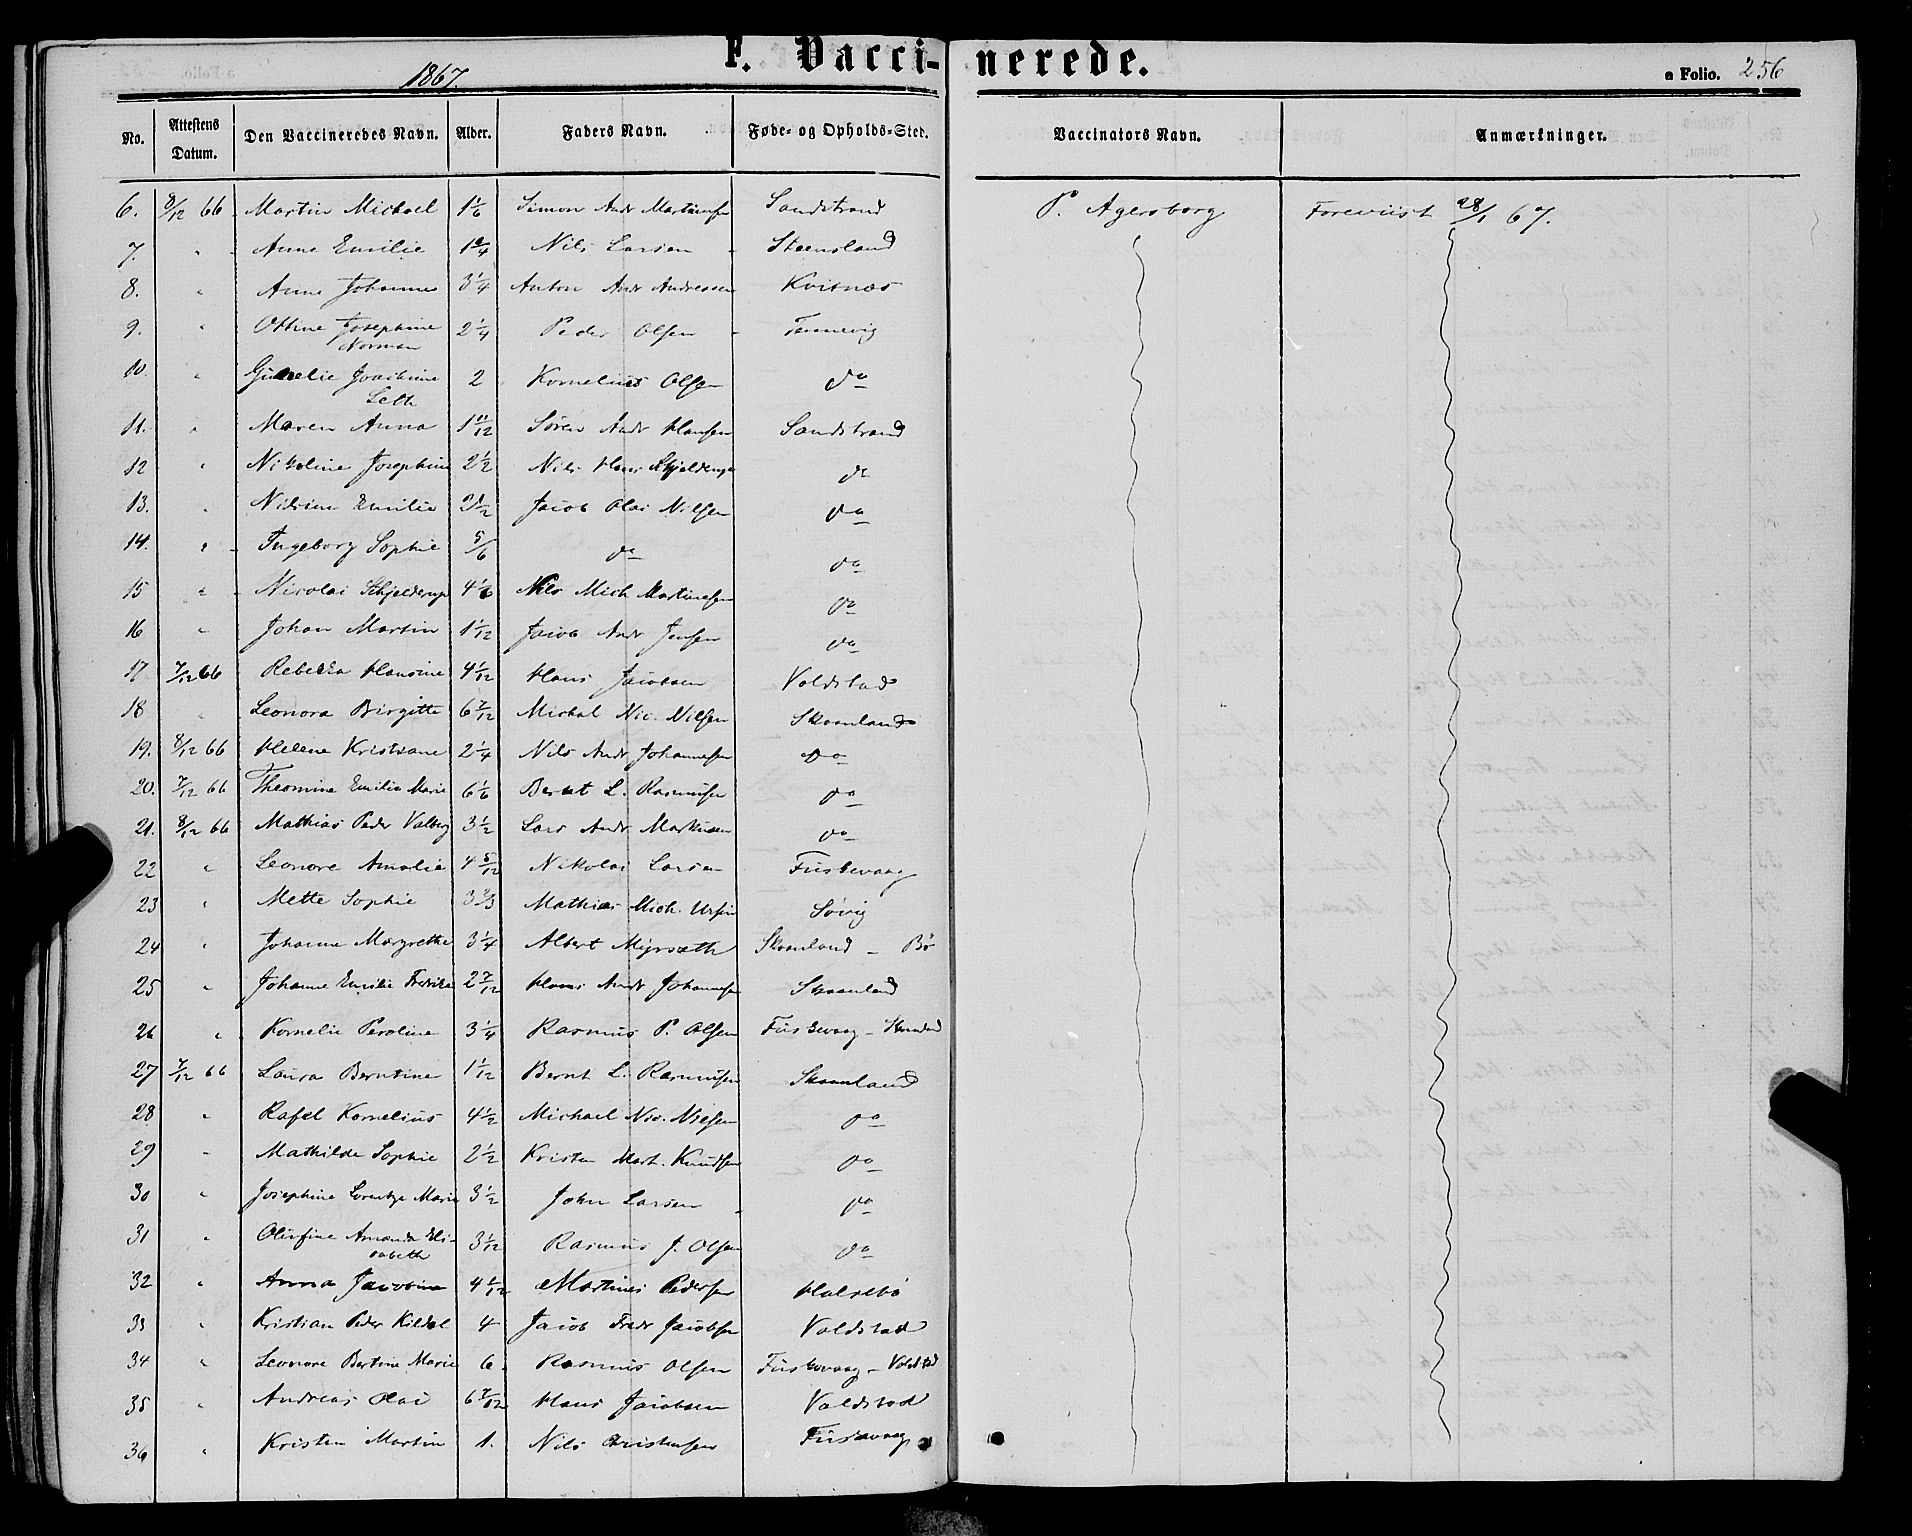 1867.
F. Vaccinerede.
a Folio. 256
No. Attestens Datum. Den Vaccineredes Navn. Alder. Faders Navn. Føde- og Opholds-Sted. Vaccinators Navn. Anmærkninger.
6. 8/12 66 Martin Michael 1 1/6 Simon Andr Martinsen Sandstrand P. Agersborg Foreviist 28/1 67.
7. " Anne Emilie Nils Larsen Steensland
8. " Anne Johanne 3 1/4 Anton Andr Andressen Kvitnæs
9. " Othine Josephine 2 1/4 Peder Olsen Tennevig
Norman
10. " Joachime 2 Kornelius Olsen do
Leth
11. " Maren Anna 1 11/12 Søren Andr Hansen Sandstrand
12 " Nikoline Josephine 2 1/2 Nils Hans Skjelderup do
13. " Nilsine Emilie 2 1/2 Jacob Olai Nilsen do
14. " Ingeborg Sophie 5/6 do do
15 " Nicolai Skjelderup 4 1/6 Nils Mich Martinesen do
16 " Johan Martin 1 1/12 Jacob Andr Jensen do
17 7/12 66 Rebekka Hansine 4 1/12 Hans Jacobsen Voldstad
18 " Leonora Birgitte 6 7/12 Michal Nic. Nilsen Skaanland
19. 8/12 66 Helene Kristiane 2 1/4 Nils Andr Johannesen do
20. 7/12 66 Theomine Emilie Marie 6 1/6 Bernt L. Rasmusen do
21. 8/12 66 Mathias Peder Valberg 3 1/2 Lars Andr Markusen do
22 " Leonore Amalie 4 5/12 Nikolai Larsen Fuskevaag
23 " Mette Sophie 3 2/3 Mathias Mich. Ursin Søvig
24 " Johanne Margrethe 3 1/4 Albert Myrsæth Skaanland - Bø
25 " Johanne Emilie Fredrikke 2 7/12 Hans Andr Johannesen Skaanland
26 " Kornelie Peroline 3 1/4 Rasmus P. Olsen Fuskevaag -
27 7/12 66 Laura Berntine 1 1/12 Bernt L. Rasmusen Skaanland
28 " Rafel Kornelius 4 1/2 Michael Nic. Nielsen do
29 " Mathilde Sophie 2 1/2 Kristen Mart. Knudsen do
30 " Josephine Lorentze Marie 3 1/2 John Larsen do
31 " Olufine Amanda Eli- 3 1/12 Rasmus J. Olsen do
sabeth
32 " Anna Jacobine 4 1/12 Martines Pedersen Halsebø
33 " Kristian Peder Kildal 4 Jacob Fredr Jacobsen Voldstad
34 " Leonore Bertine Marie 6. Rasmus Olsen Fuskevaag - Voldstad
35 " Andreas Olai 6 7/12 Hans Jacobsen Voldstad
36 " Kristen Martin 1. Nils Christensen Fuskevaag